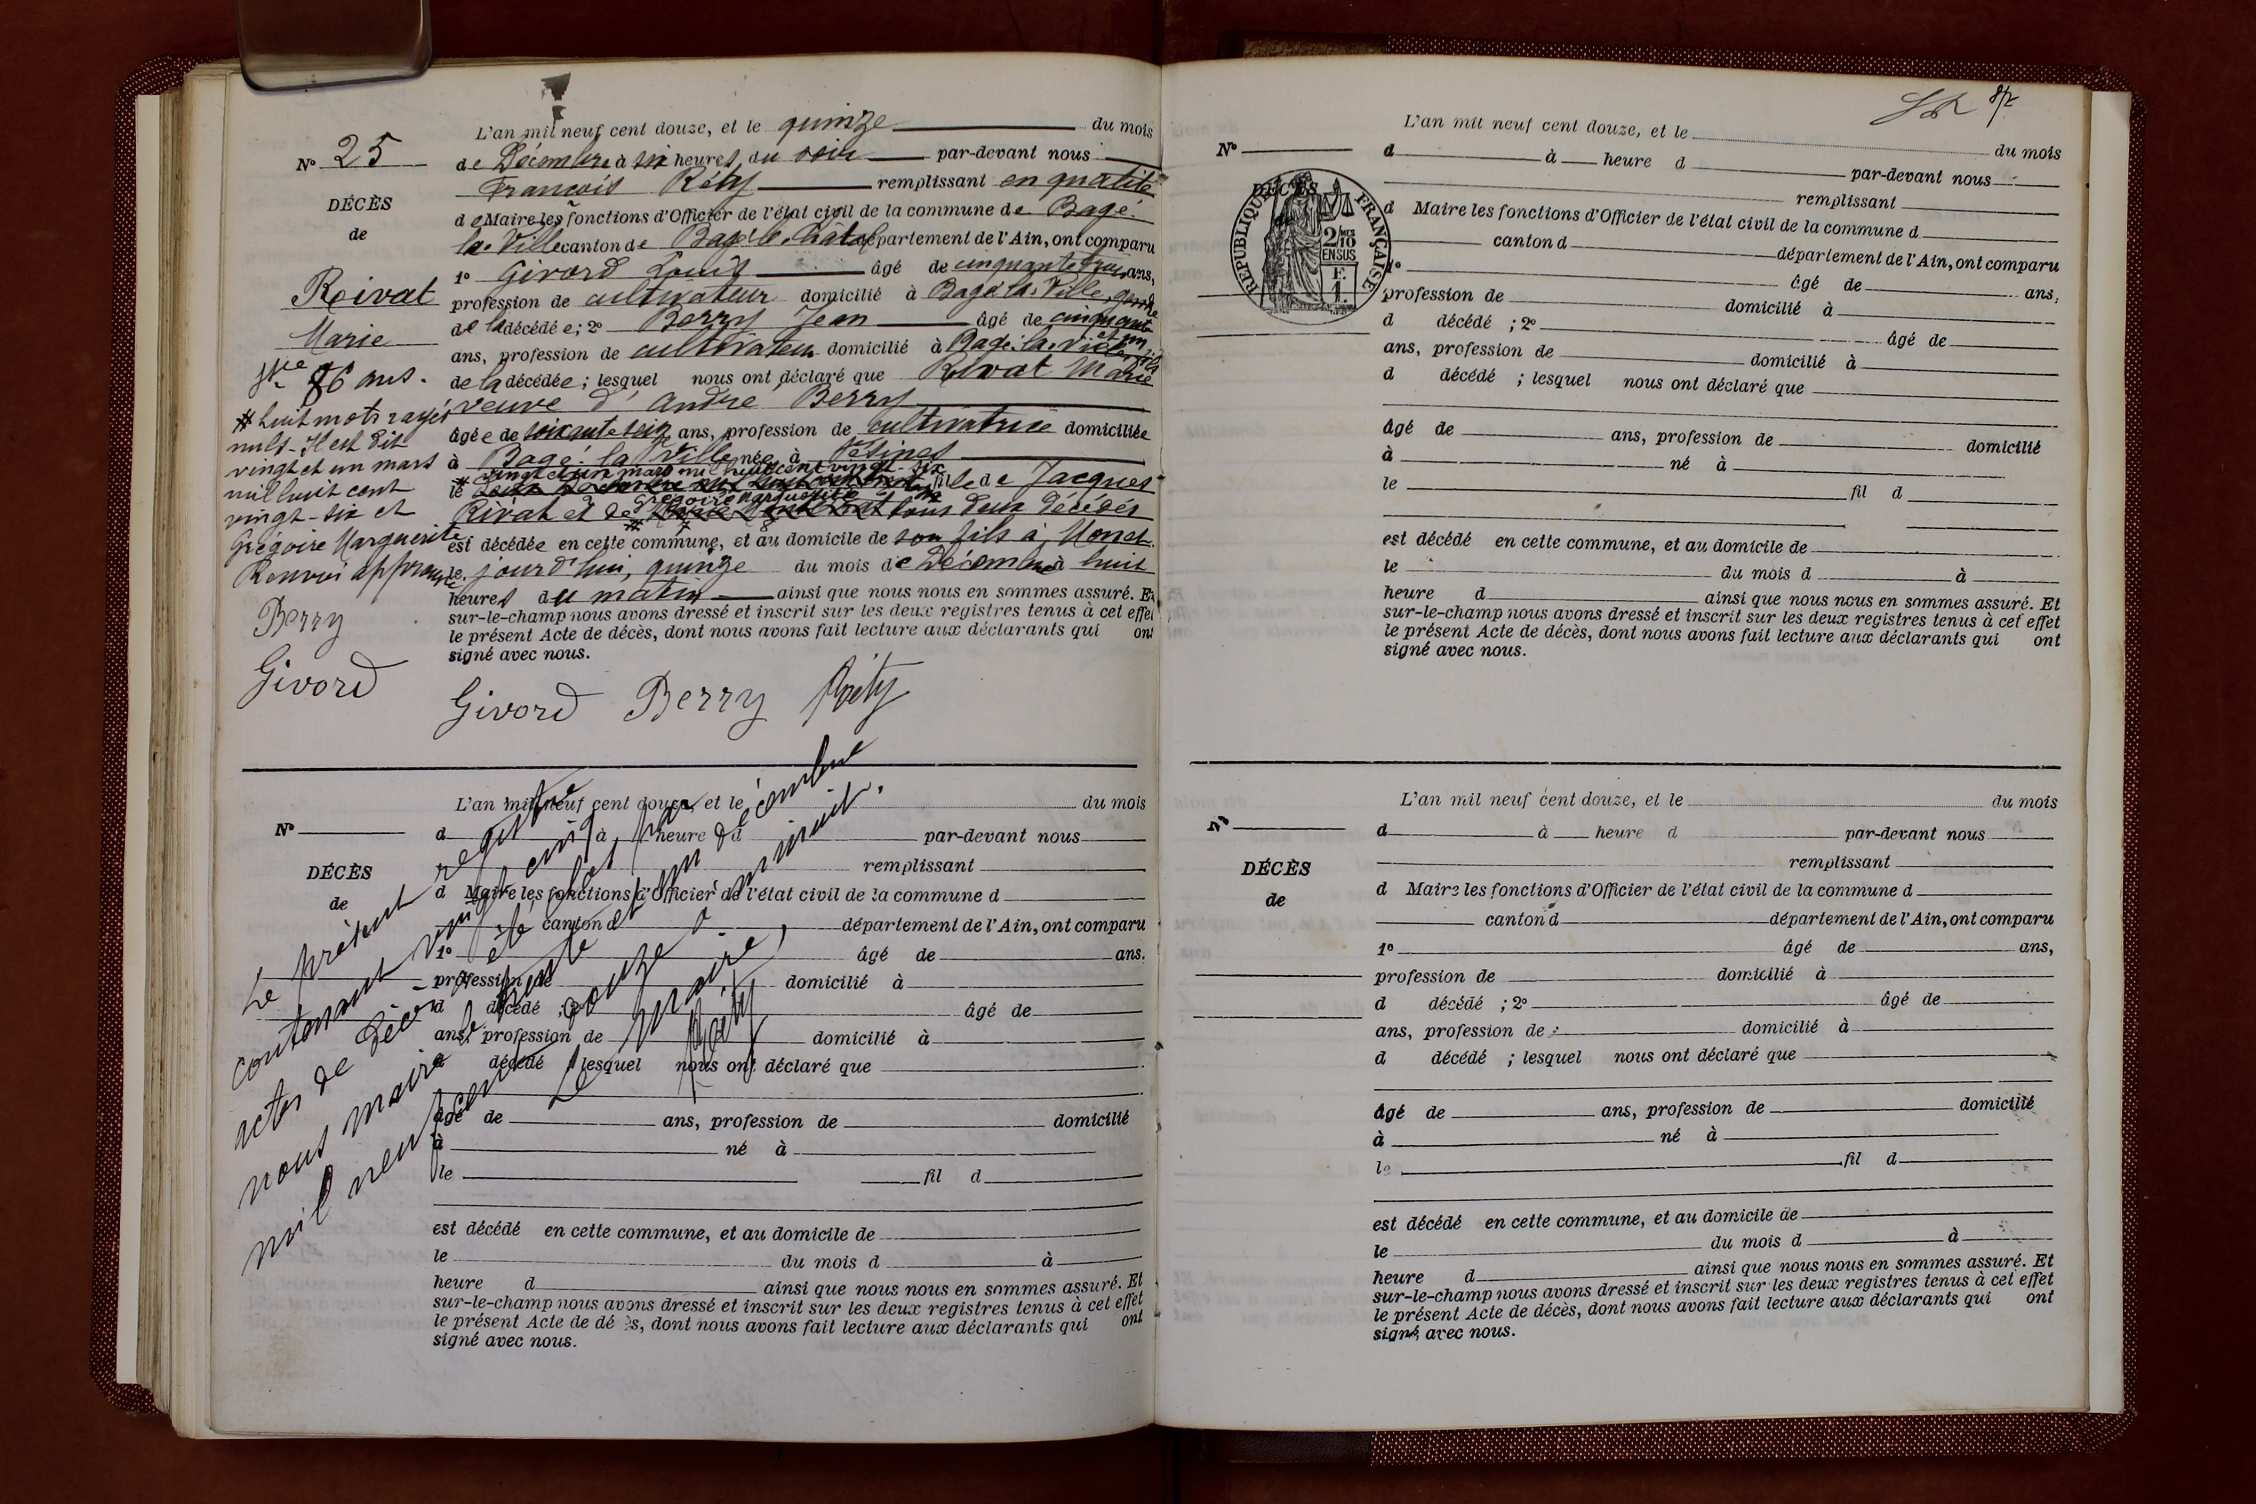 L'an mil neuf cent douze, et le quinze du mois
N° 25
de Décembre à six heures du soir par-devant nous
François Réty remplissant en qualité
DÉCÈS
de Maire les fonctions d'Officier de l'état civil de la commune de Bagé
de
la Ville canton de Bagé-le-Chatel département de l'Ain, ont comparu
1° Givord Louis âgé de cinquante ans,
Rivat
profession de cultivateur domicilié à Bagé la Ville, gendre
de la décédée; 2° Berry Jean âgé de cinquante et un
Marie
ans, profession de cultivateur domicilié à Bagé-la-Ville, fils
Vve 86 ans.
de la décédée; lesquel nous ont déclaré que Rivat Marie
veuve d'André Berry
# huit mots rayés
nuls - Il est dit
vingt et un mars
mil huit cent
vingt-six et
Grégoire Marguerite
Renvoi approuvé
Berry
Givord
âgée de ans, profession de cultivatrice domiciliée
à Bagé la Ville née à Vésines
# vingt et un mars mil huit cent vingt-six
le fille de Jacques
Grégoire Marguerite
Rivat et de tous deux décédés
est décédée en cette commune, et au domicile de son fils à Monet
le jourd'hui, quinze du mois de Décembre à huit
heures du matin ainsi que nous nous en sommes assuré. Et
sur-le-champ nous avons dressé et inscrit sur les deux registres tenus à cet effet
le présent Acte de décès, dont nous avons fait lecture aux déclarants qui ont
signé avec nous.
Givord Berry Réty
Le présent registre
contenant vingt cinq
actes de décès a été clos par
nous maire le trente et un décembre
mil neuf cent douze à minuit.
Le Maire,
Réty
L'an mil neuf cent douze, et le du mois
N°
d à heure d par-devant nous
remplissant
DÉCÈS
d Maire les fonctions d'Officier de l'état civil de la commune d
de
canton d département de l'Ain, ont comparu
1° âgé de ans.
profession de domicilié à
d décédé ; 2° âgé de
ans, profession de domicilié à
d décédé ; lesquel nous ont déclaré que
âgé de ans, profession de domicilié
à né à
le fil d
est décédé en cette commune, et au domicile de
le du mois d à
heure d ainsi que nous nous en sommes assuré. Et
sur-le-champ nous avons dressé et inscrit sur les deux registres tenus à cet effet
le présent Acte de décès, dont nous avons fait lecture aux déclarants qui ont
signé avec nous.
L'an mil neuf cent douze, et le du mois
N°
d à heure d par-devant nous
remplissant
DÉCÈS
RÉPUBLIQUE FRANÇAISE
2/10 MES EN SUS
F. 1.
d Maire les fonctions d'Officier de l'état civil de la commune d
canton d département de l'Ain, ont comparu
1° âgé de ans,
profession de domicilié à
d décédé ; 2° âgé de
ans, profession de domicilié à
d décédé ; lesquel nous ont déclaré que
âgé de ans, profession de domicilié
à né à
le fil d
est décédé en cette commune, et au domicile de
le du mois d à
heure d ainsi que nous nous en sommes assuré. Et
sur-le-champ nous avons dressé et inscrit sur les deux registres tenus à cet effet
le présent Acte de décès, dont nous avons fait lecture aux déclarants qui ont
signé avec nous.
L'an mil neuf cent douze, et le du mois
N°
d à heure d par-devant nous
remplissant
DÉCÈS
d Maire les fonctions d'Officier de l'état civil de la commune d
de
canton d département de l'Ain, ont comparu
1° âgé de ans,
profession de domicilié à
d décédé ; 2° âgé de
ans, profession de domicilié à
d décédé ; lesquel nous ont déclaré que
âgé de ans, profession de domicilié
à né à
le fil d
est décédé en cette commune, et au domicile de
le du mois d à
heure d ainsi que nous nous en sommes assuré. Et
sur-le-champ nous avons dressé et inscrit sur les deux registres tenus à cet effet
le présent Acte de décès, dont nous avons fait lecture aux déclarants qui ont
signé avec nous.